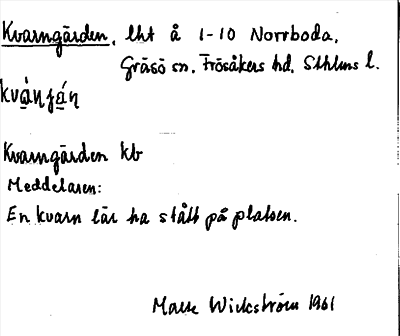 Kvarngärden, lht å 1-10 Norrboda,
Gräsö sn. Frösåkers hd. Sthlms l.
Kvarngärden kb
Meddelaren:
En kvarn lär ha stått på platsen.
Wickström 1961